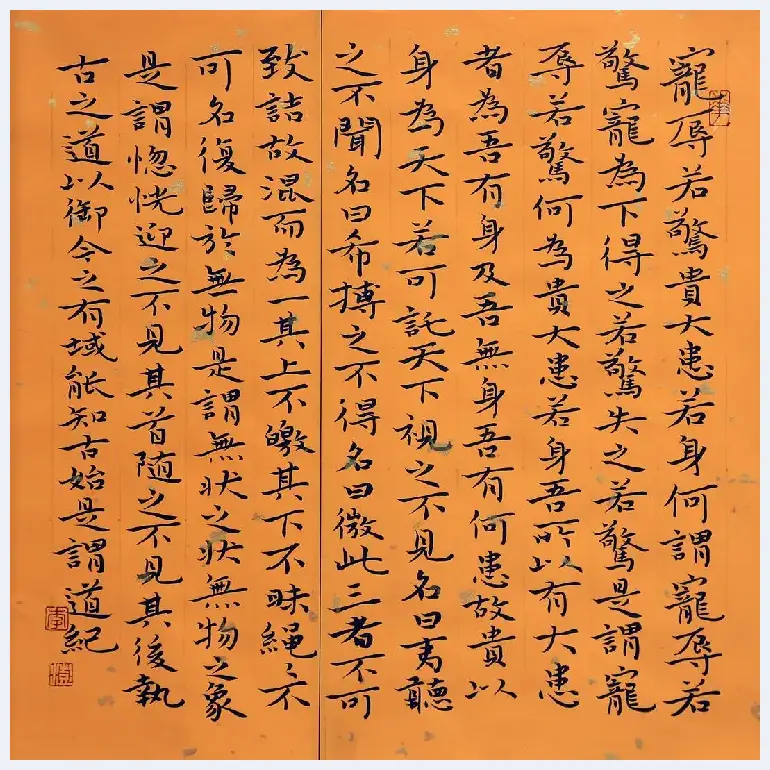 寵辱若驚貴大患若身何謂寵辱若
驚寵為下得之若驚失之若驚是謂寵
辱若驚何為貴大患若身吾所以有大患
者為吾有身及吾無身吾有何患故貴以
身為天下若可託天下視之不見名曰夷聽
之不聞名曰希搏之不得名曰微此三者不可
致詰故混而為一其上不皦其下不昧繩〻不
可名復歸於無物是謂無狀之狀無物之象
是謂惚恍迎之不見其首隨之不見其後執
古之道以御今之有域能知古始是謂道紀
李